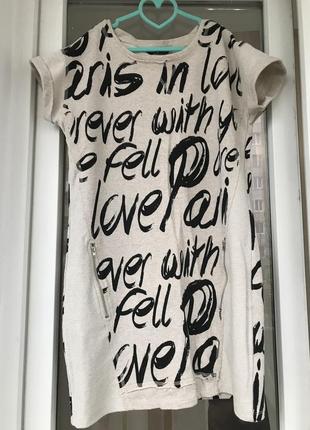 aris in lo
rever with y
e fell p re
love pari
ever with
fell p
ove